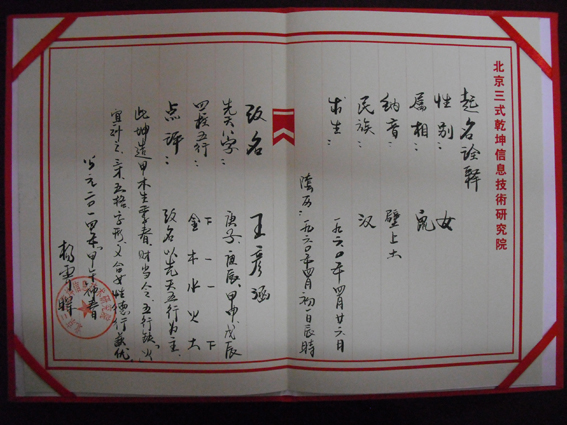 北京三式乾坤信息技術研究院
起名詮釋
性别：女
属相：鼠
纳音：壁上土
民族：汉
求生：一九六0年四月廿六日
阴历：一九六0年四月初一日辰時
改名 王彦涵
先天八字：庚子、庚辰、甲申、戊辰
四楼五行：金木水火土
点评：改名以先天五行为主
此坤造甲木生季春，财当令，五行缺火
宜补之，三才五格，字形，文合女性德行兼优。
公元二0一四年甲午仲春